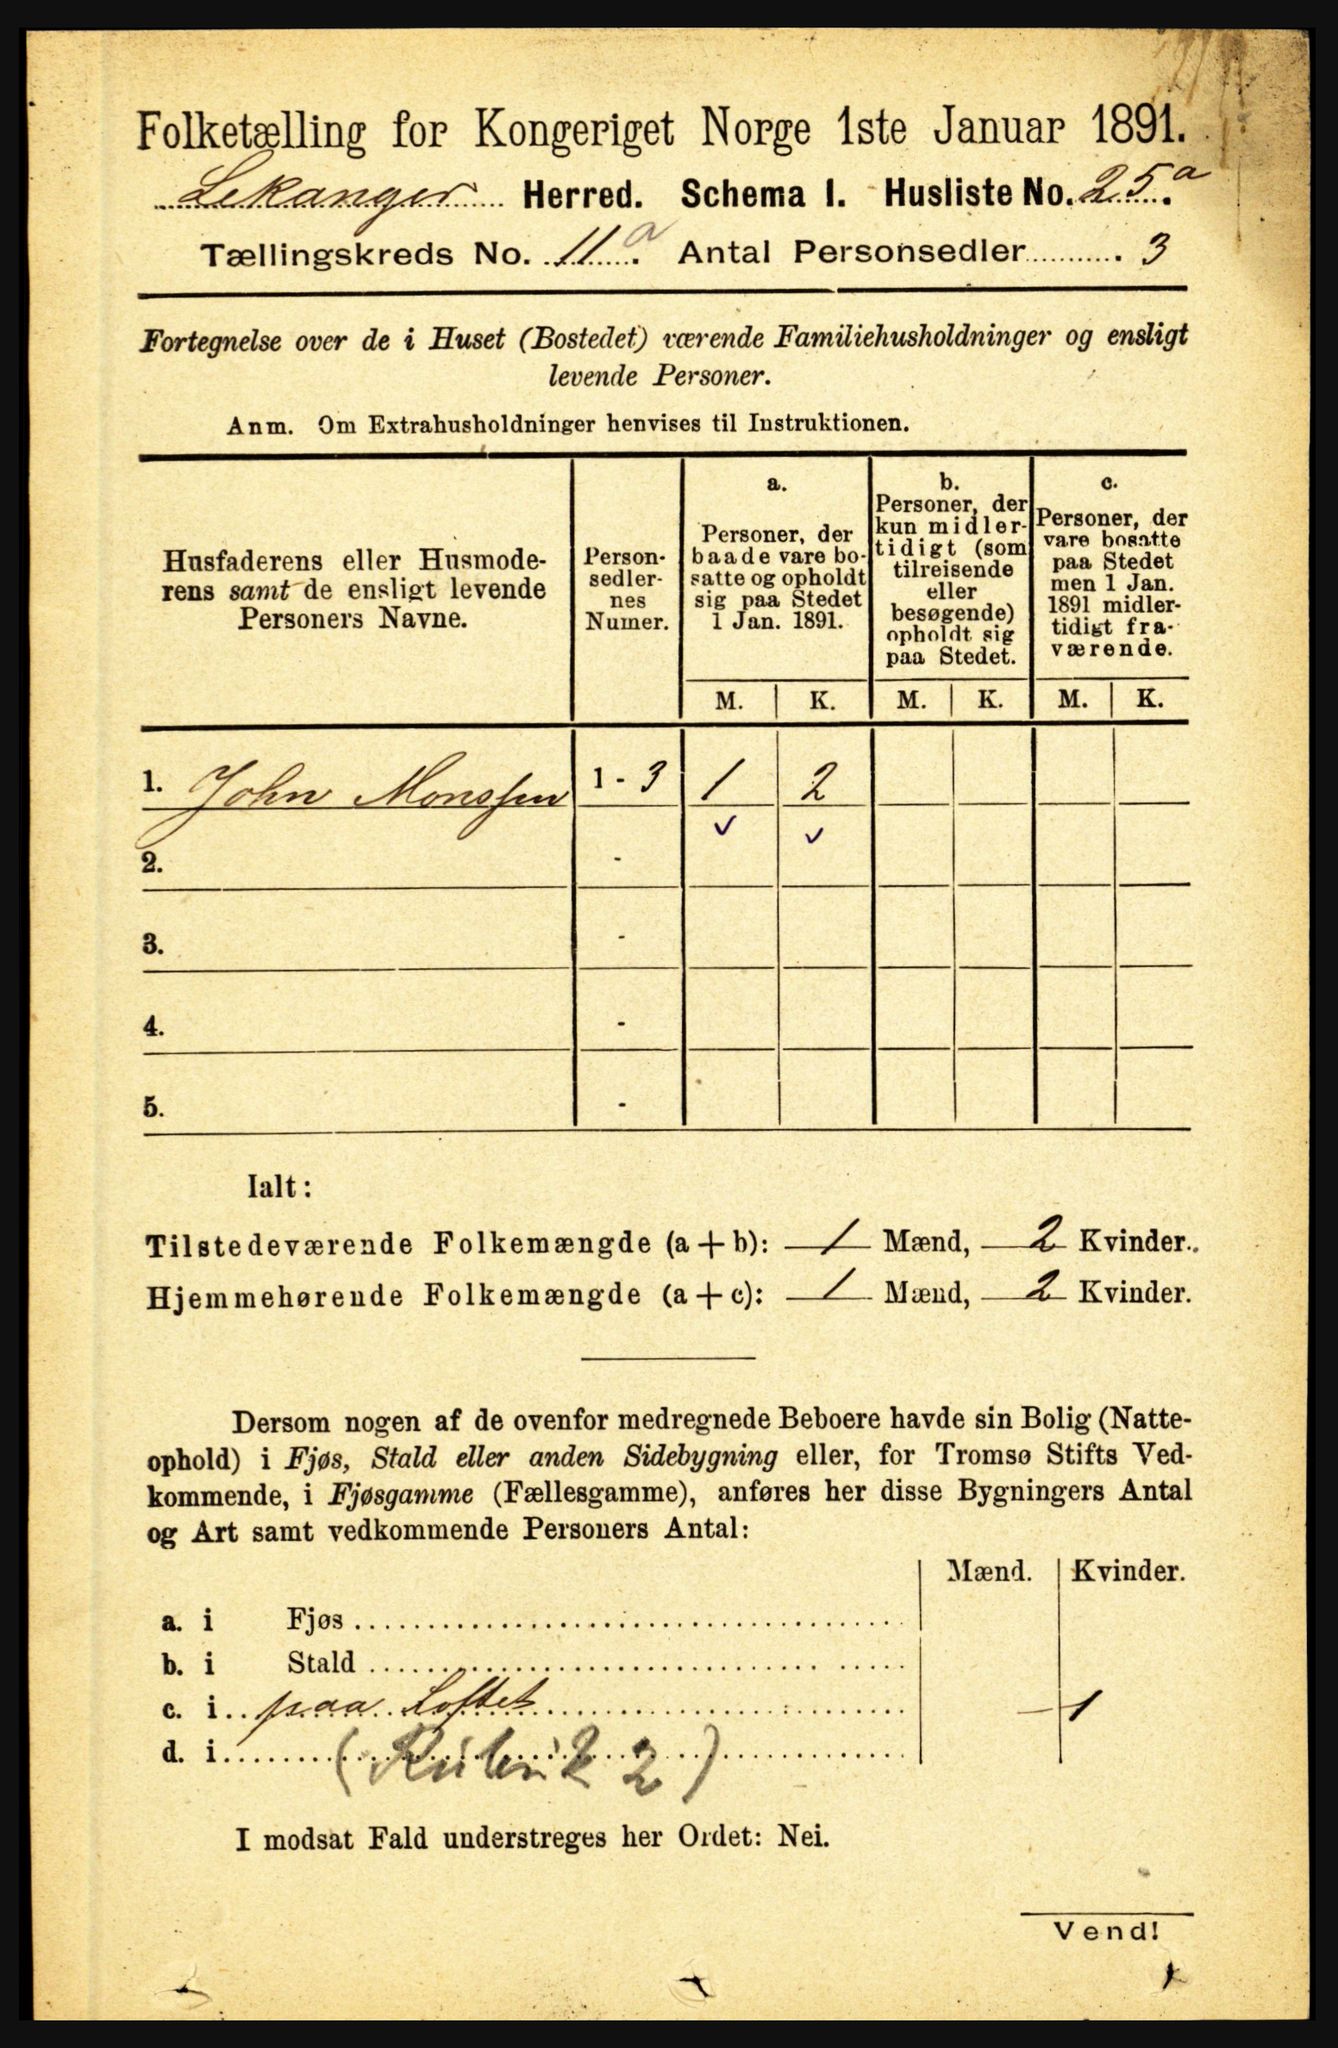 Folketælling for Kongeriget Norge 1ste Januar 1891.
Lekanger Herred. Schema I. Husliste No. 25a.
Tællingskreds No. 11a. Antal Personsedler 3
Fortegnelse over de i Huset (Bostedet) værende Familiehusholdninger og ensligt
levende Personer.
Anm. Om Extrahusholdninger henvises til Instruktionen.
Husfaderens eller Husmode-
rens samt de ensligt levende
Personers Navne.
Person-
sedler-
nes
Numer.
a.
Personer, der
baade vare bo-
satte og opholdt
sig paa Stedet
1 Jan. 1891.
b.
Personer, der
kun midler-
tidigt (som
tilreisende
eller
besøgende)
opholdt sig
paa Stedet.
c.
Personer, der
vare bosatte
paa Stedet
men 1 Jan.
1891 midler-
tidigt fra-
værende.
M. K. M. K. M. K.
1. John Monssen 1 - 3 1 2
2. -
3. -
4. -
5. -
Ialt:
Tilstedeværende Folkemængde (a + b): 1 Mænd, 2 Kvinder.
Hjemmehørende Folkemængde (a + c): 1 Mænd, 2 Kvinder.
Dersom nogen af de ovenfor medregnede Beboere havde sin Bolig (Natte-
ophold) i Fjøs, Stald eller anden Sidebygning eller, for Tromsø Stifts Ved-
kommende, i Fjøsgamme (Fællesgamme), anføres her disse Bygningers Antal
og Art samt vedkommende Personers Antal:
Mænd. Kvinder.
a. i Fjøs
b. i Stald
c. i paa Loftet - 1
d. i (Rubrik 2)
I modsat Fald understreges her Ordet: Nei.
Vend!